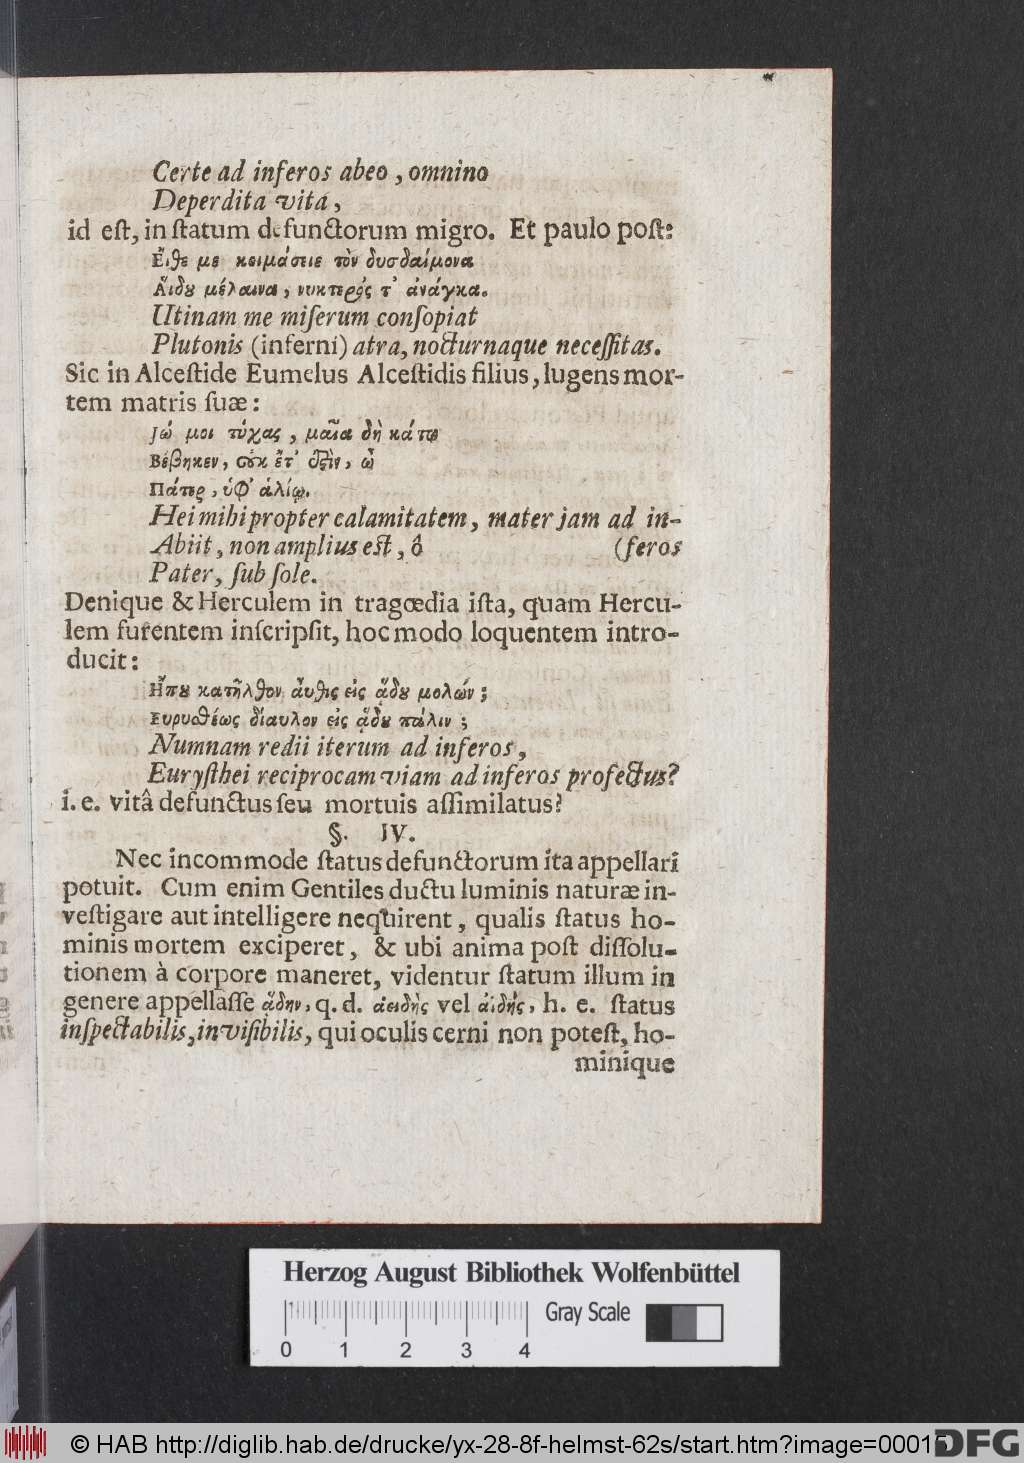 Certe ad inferos abeo, omnino
Deperdita vitá,
id eſt, in ſtatum defunctorum migro. Et paulo poſt:
Εἴθε με κειμάσειε τὸν δυσδαίμονα
Ἅιδου μέλαινα, νυκτερός τ' ἀνάγκα.
Utinam me miſerum conſopiat
Plutonis (inferni) atra, nocturnaque neceſſitas.
Sic in Alceſtide Eumelus Alceſtidis filius, lugens mor-
tem matris ſuæ:
Ἰώ μοι τύχας, μαῖα δὴ κάτω
Βέβηκεν, οὐκ ἔτ' ἐστὶν, ὦ
Πάτερ, ὑφ' ἁλίῳ.
Hei mihi propter calamitatem, mater jam ad in-
Abiit, non amplius eſt, ô (feros
Pater, ſub ſole.
Denique & Herculem in tragœdia iſta, quam Hercu-
lem furentem inſcripſit, hoc modo loquentem intro-
ducit:
Ἦπου κατῆλθον αὖθις εἰς ᾅδου μολών;
Ευρυσθέως δίαυλον εἰς ᾅδου πάλιν;
Numnam redii iterum ad inferos,
Euryſthei reciprocam viam ad inferos profectus?
i. e. vitâ defunctus ſeu mortuis aſſimilatus?
§. IV.
Nec incommode ſtatus defunctorum ita appellari
potuit. Cum enim Gentiles ductu luminis naturæ in-
veſtigare aut intelligere nequirent, qualis ſtatus ho-
minis mortem exciperet, & ubi anima poſt diſſolu-
tionem à corpore maneret, videntur ſtatum illum in
genere appellaſſe ᾅδην, q. d. ἀειδὴς vel ἀϊδής, h. e. ſtatus
inſpectabilis, inviſibilis, qui oculis cerni non poteſt, ho-
minique
Herzog August Bibliothek Wolfenbüttel
Gray Scale
0 1 2 3 4
© HAB http://diglib.hab.de/drucke/yx-28-8f-helmst-62s/start.htm?image=00015
DFG